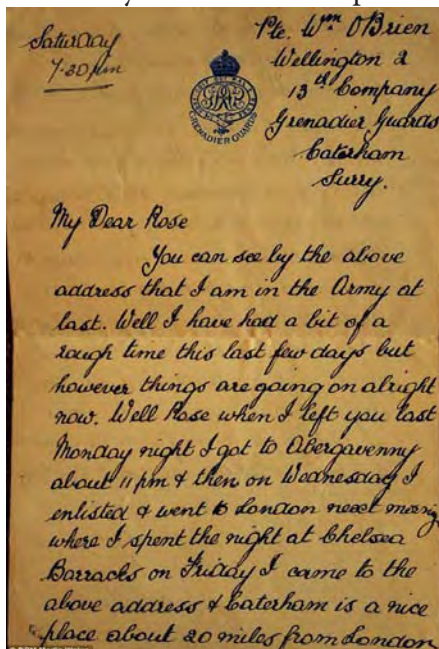 Saturday
7-30 pm
Pte. Wm O'Brien
Wellington 2
13th Company
Grenadier Guards
Caterham
Surry.
GRENADIER GUARDS
My Dear Rose
You can see by the above
address that I am in the Army at
last. Well I have had a bit of a
rough time this last few days but
however things are going on alright
now. Well Rose when I left you last
Monday night I got to Abergavenny
about 11 pm & then on Wednesday I
enlisted & went to London next morning
where I spent the night at Chelsea
Barracks on Friday I came to the
above address & Caterham is a nice
place about 20 miles from London